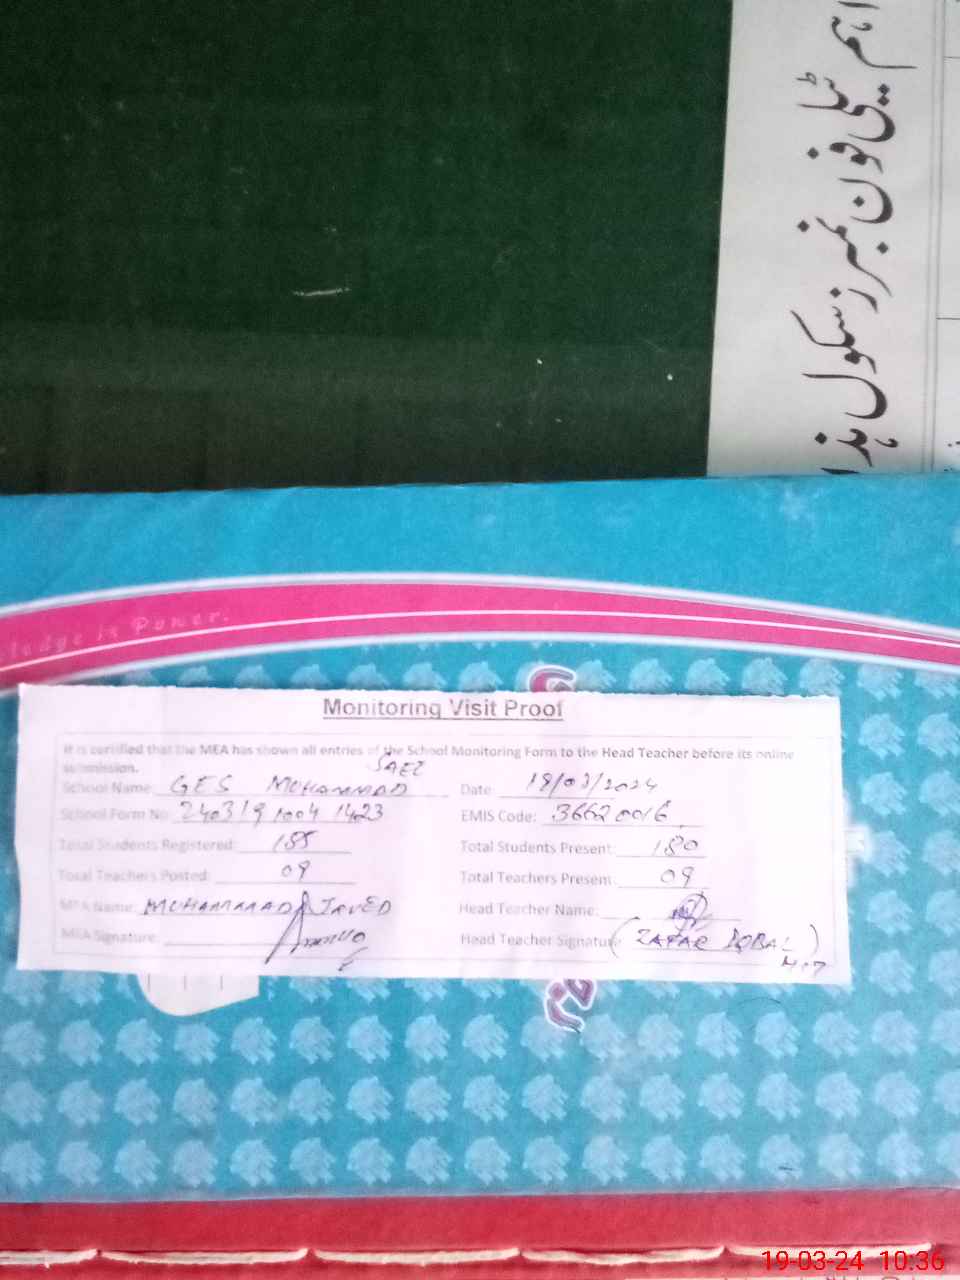 اہم ٹیلی فون نمبرز سکول ہذا
ledge is Power.
Monitoring Visit Proof
It is certified that the MEA has shown all entries of the School Monitoring Form to the Head Teacher before its online
submission.
School Name: GES MUHAMMAD SAEE Date: 19/03/2024
School Form No: 240319 1004 1423 EMIS Code: 36620016
Total Students Registered: 185 Total Students Present: 180
Total Teachers Posted: 09 Total Teachers Present: 09
MEA Name: MUHAMMAD JAVED Head Teacher Name:
MEA Signature: Head Teacher Signature (ZAFAR IQBAL)
19-03-24 10:36